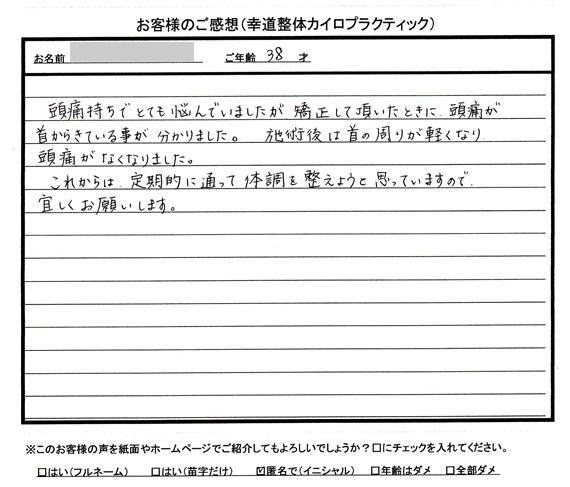 お客様のご感想(幸道整体カイロプラクティック)
お名前 ご年齢 38 才
頭痛持ちでとても悩んでいましたが 矯正して頂いたときに、頭痛が
首からきている事が 分かりました。 施術後は首の周りが軽くなり
頭痛がなくなりました。
これからは、定期的に通って体調を整えようと思っていますので、
宜しくお願いします。
※このお客様の声を紙面やホームページでご紹介してもよろしいでしょうか?□にチェックを入れてください。
□はい(フルネーム) □はい(苗字だけ) ☑匿名で(イニシャル) □年齢はダメ □全部ダメ